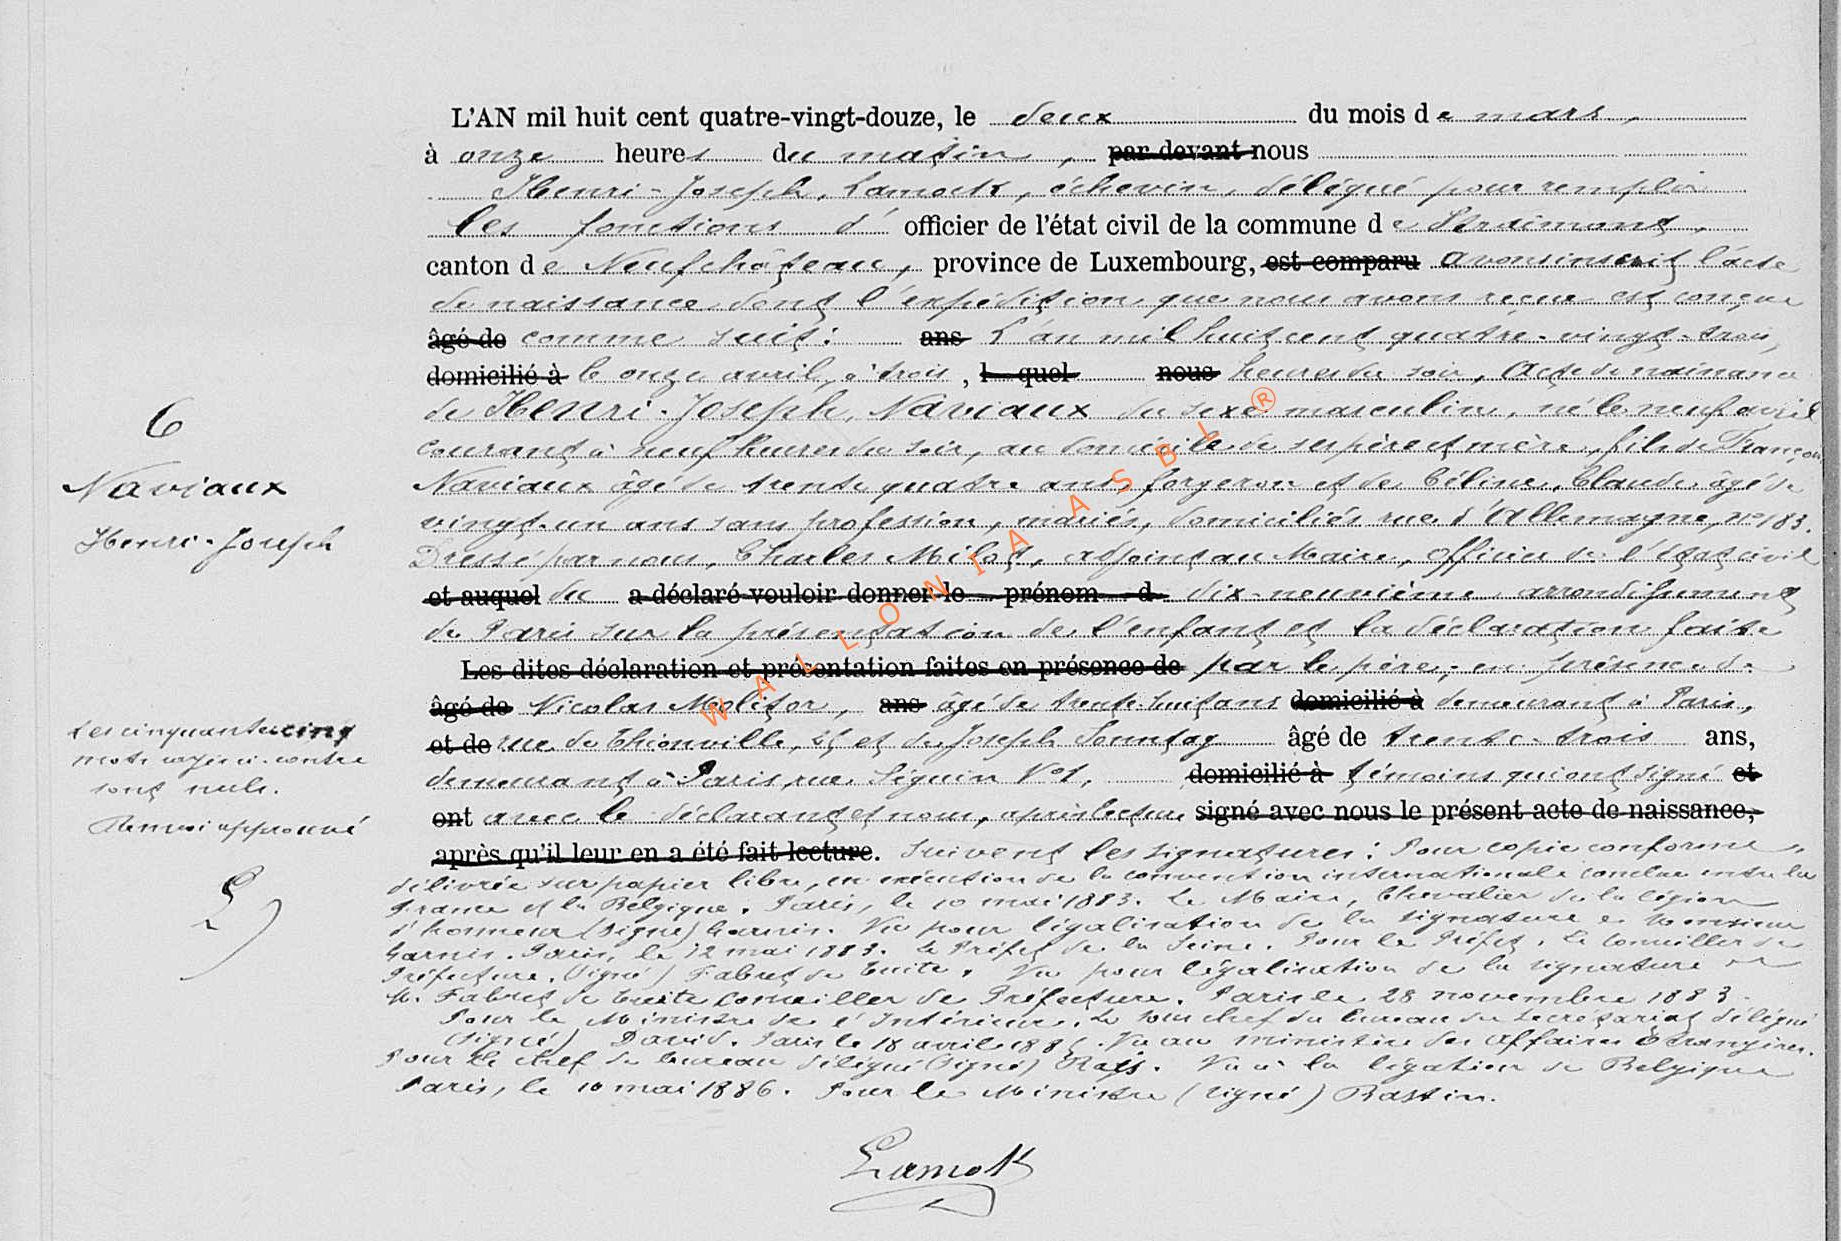 L'AN mil huit cent quatre-vingt-douze, le deux du mois de mars,
à onze heures du matin, par devant nous
Henri-Joseph, Lamock, échevin, délégué pour remplir
les fonctions d' officier de l'état civil de la commune de Straimont,
canton de Neufchâteau, province de Luxembourg, est comparu avons inscrit l'acte
de naissance dont l'expédition que nous avons reçue est conçue
âgé de comme suit: ans L'an mil huit cent quatre-vingt-trois,
domicilié à le onze avril, à trois, l quel nous heures du soir, Acte de naissance
6
de Henri-Joseph, Naviaux du sexe masculin, né le neuf avril
courant à neuf heures du soir, au domicile de ses père et mère, fils de François
Naviaux
Naviaux âgé de trente quatre ans, forgeron et de Céline, Claude âgée de
Henri-Joseph
vingt-un ans sans profession, mariés, domiciliés rue d'Allemagne, no 183.
Dressé par nous, Charles Milot, adjoint au Maire, officier de l'état civil
et auquel du a déclaré vouloir donner le prénom d dix-neuvième arrondissement
de Paris sur la présentation de l'enfant et la déclaration faite
Les dites déclaration et présentation faites en présence de par le père, en présence de
âgé de Nicolas Molitor, ans âgé de trente-huit ans domicilié à demeurant à Paris,
Les cinquante-cinq
et de rue de Thionville, et de Joseph Sonntag âgé de trente-trois ans,
mots rayés ci-contre
demeurant à Paris, rue Séguin No 1, domicilié à témoins qui ont signé et
sont nuls.
ont avec le déclarant et nous, après lecture signé avec nous le présent acte de naissance,
Renvoi approuvé
après qu'il leur en a été fait lecture. Suivent les signatures: Pour copie conforme,
L
délivrée sur papier libre, en exécution de la convention internationale conclue entre la
France et la Belgique. Paris, le 10 mai 1883. Le Maire, Chevalier de la légion
d'honneur (signé) Garnis. Vu pour légalisation de la signature de Monsieur
Garnis. Paris, le 12 mai 1883. Le Préfet de la Seine. Pour le Préfet, Le Conseiller de
Préfecture, (signé) Fabret de Vu pour légalisation de la signature de
M. Fabret de Conseiller de Préfecture. Paris le 28 novembre 1883.
Pour le Ministre de l'Intérieur. Le sous chef du bureau du secrétariat délégué
(signé) David. Paris le 18 avril Vu au ministère des Affaires Étrangères.
Pour le chef de bureau délégué (signé) Vu à la légation de Belgique
Paris, le 10 mai 1886. Pour le Ministre (signé) Bastin.
Lamock
WALLONIA ASBL ®